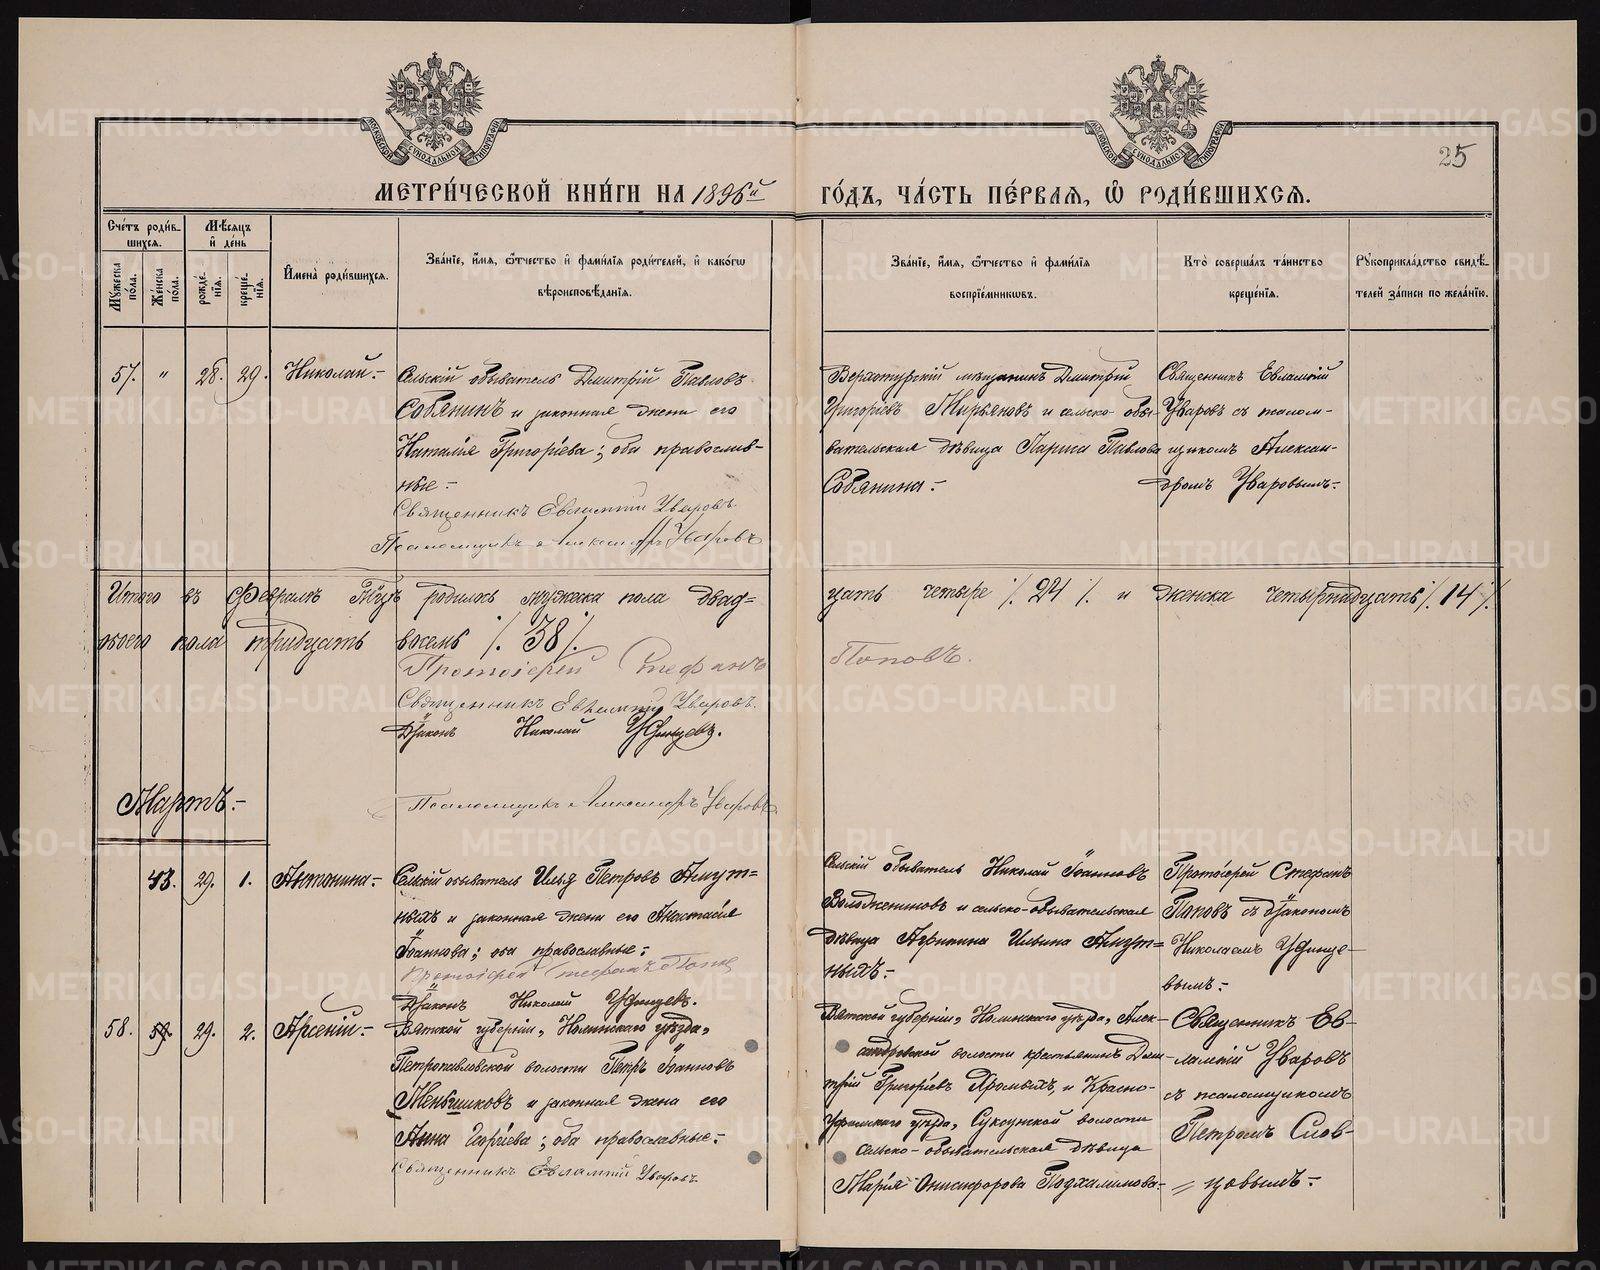 25
МЕТРИ́ЧЕСКОЙ КНИ́ГИ НА 1896й
ГО́ДЪ, ЧА́СТЬ ПЕ́РВАЯ, Ѡ҆ РОДИ́ВШИХСЯ.
Сче́тъ роди́в-
шихся.
Мѣ́сяцъ
и҆ де́нь
Му́жеска
по́ла.
Же́нска
по́ла.
рожде́-
нїя.
креще́-
нїя.
И҆мена̀ роди́вшихся.
Зва́нїе, и҆́мя, ѻ҆́тчество и҆ фами́лїя роди́телей, и҆ како́гѡ
вѣроисповѣ́данїя.
Зва́нїе, и҆́мя, ѻ҆́тчество и҆ фами́лїя
воспрїе́мникѡвъ.
Кто̀ соверша́лъ та́инство
креще́нїя.
Рꙋкоприкла́дство свидѣ́-
телей за́писи по жела́нїю.
57. " 28. 29. Николай.-
Сельскій обыватель Дмитрій Павловъ
Собянинъ и законная жена его
Наталія Григоріева; оба православ-
ные.-
Священникъ Евлампій Уваровъ.
Псаломщикъ Александръ Уваровъ
Верхотурскій мѣщанинъ Дмитрій
Григоріевъ Мирьяновъ и сельско-обы-
вательская дѣвица Лариса Павлова
Собянина.-
Священникъ Евлампій
Уваровъ съ псалом-
щикомъ Алексан-
дромъ Уваровымъ.-
Итого въ Февралѣ м-цѣ родилось мужска пола двад=
цать четыре ./. 24 ./. и женска четырнадцать ./. 14 ./.
обоего пола тридцать восемь ./. 38 ./.
Протоіерей Стефанъ
Поповъ.
Священникъ Евлампій Уваровъ.
Діаконъ Николай Уфинцевъ.
Псаломщикъ Александръ Уваровъ
Мартъ.-
43. 29. 1. Антонина.-
Сельскій обыватель Илья Петровъ
ныхъ и законная жена его Анастасія
Іоаннова; оба православные.-
Протоіерей Стефанъ Попов
Діаконъ Николай Уфинцевъ.
Сельскій обыватель Николай Іоанновъ
Володжениновъ и сельско-обывательская
дѣвица Агрипина Ильина
ныхъ.-
Протоіерей Стефанъ
Поповъ съ діакономъ
Николаемъ Уфинце-
вымъ.-
58. 29. 2. Арсеній.-
Вятской губерніи, Нолинскаго уѣзда,
Петропавловской волости Петръ Іоанновъ
Меньшиковъ и законная жена его
Анна Георгіева; оба православные.-
Священникъ Евлампій Уваровъ
Вятской губерніи, Нолинскаго уѣзда, Алек-
сандровской волости крестьянинъ Дми-
трій Григоріевъ Хромыхъ, и Красно-
уфимскаго уѣзда, Суксунской волости
сельско-обывательская дѣвица
Марія Онисифорова Подхалимова.-
Священникъ Ев-
лампій Уваровъ
съ псаломщикомъ
Петромъ Слов-
цовымъ.-
METRIKI.GASO-URAL.RU